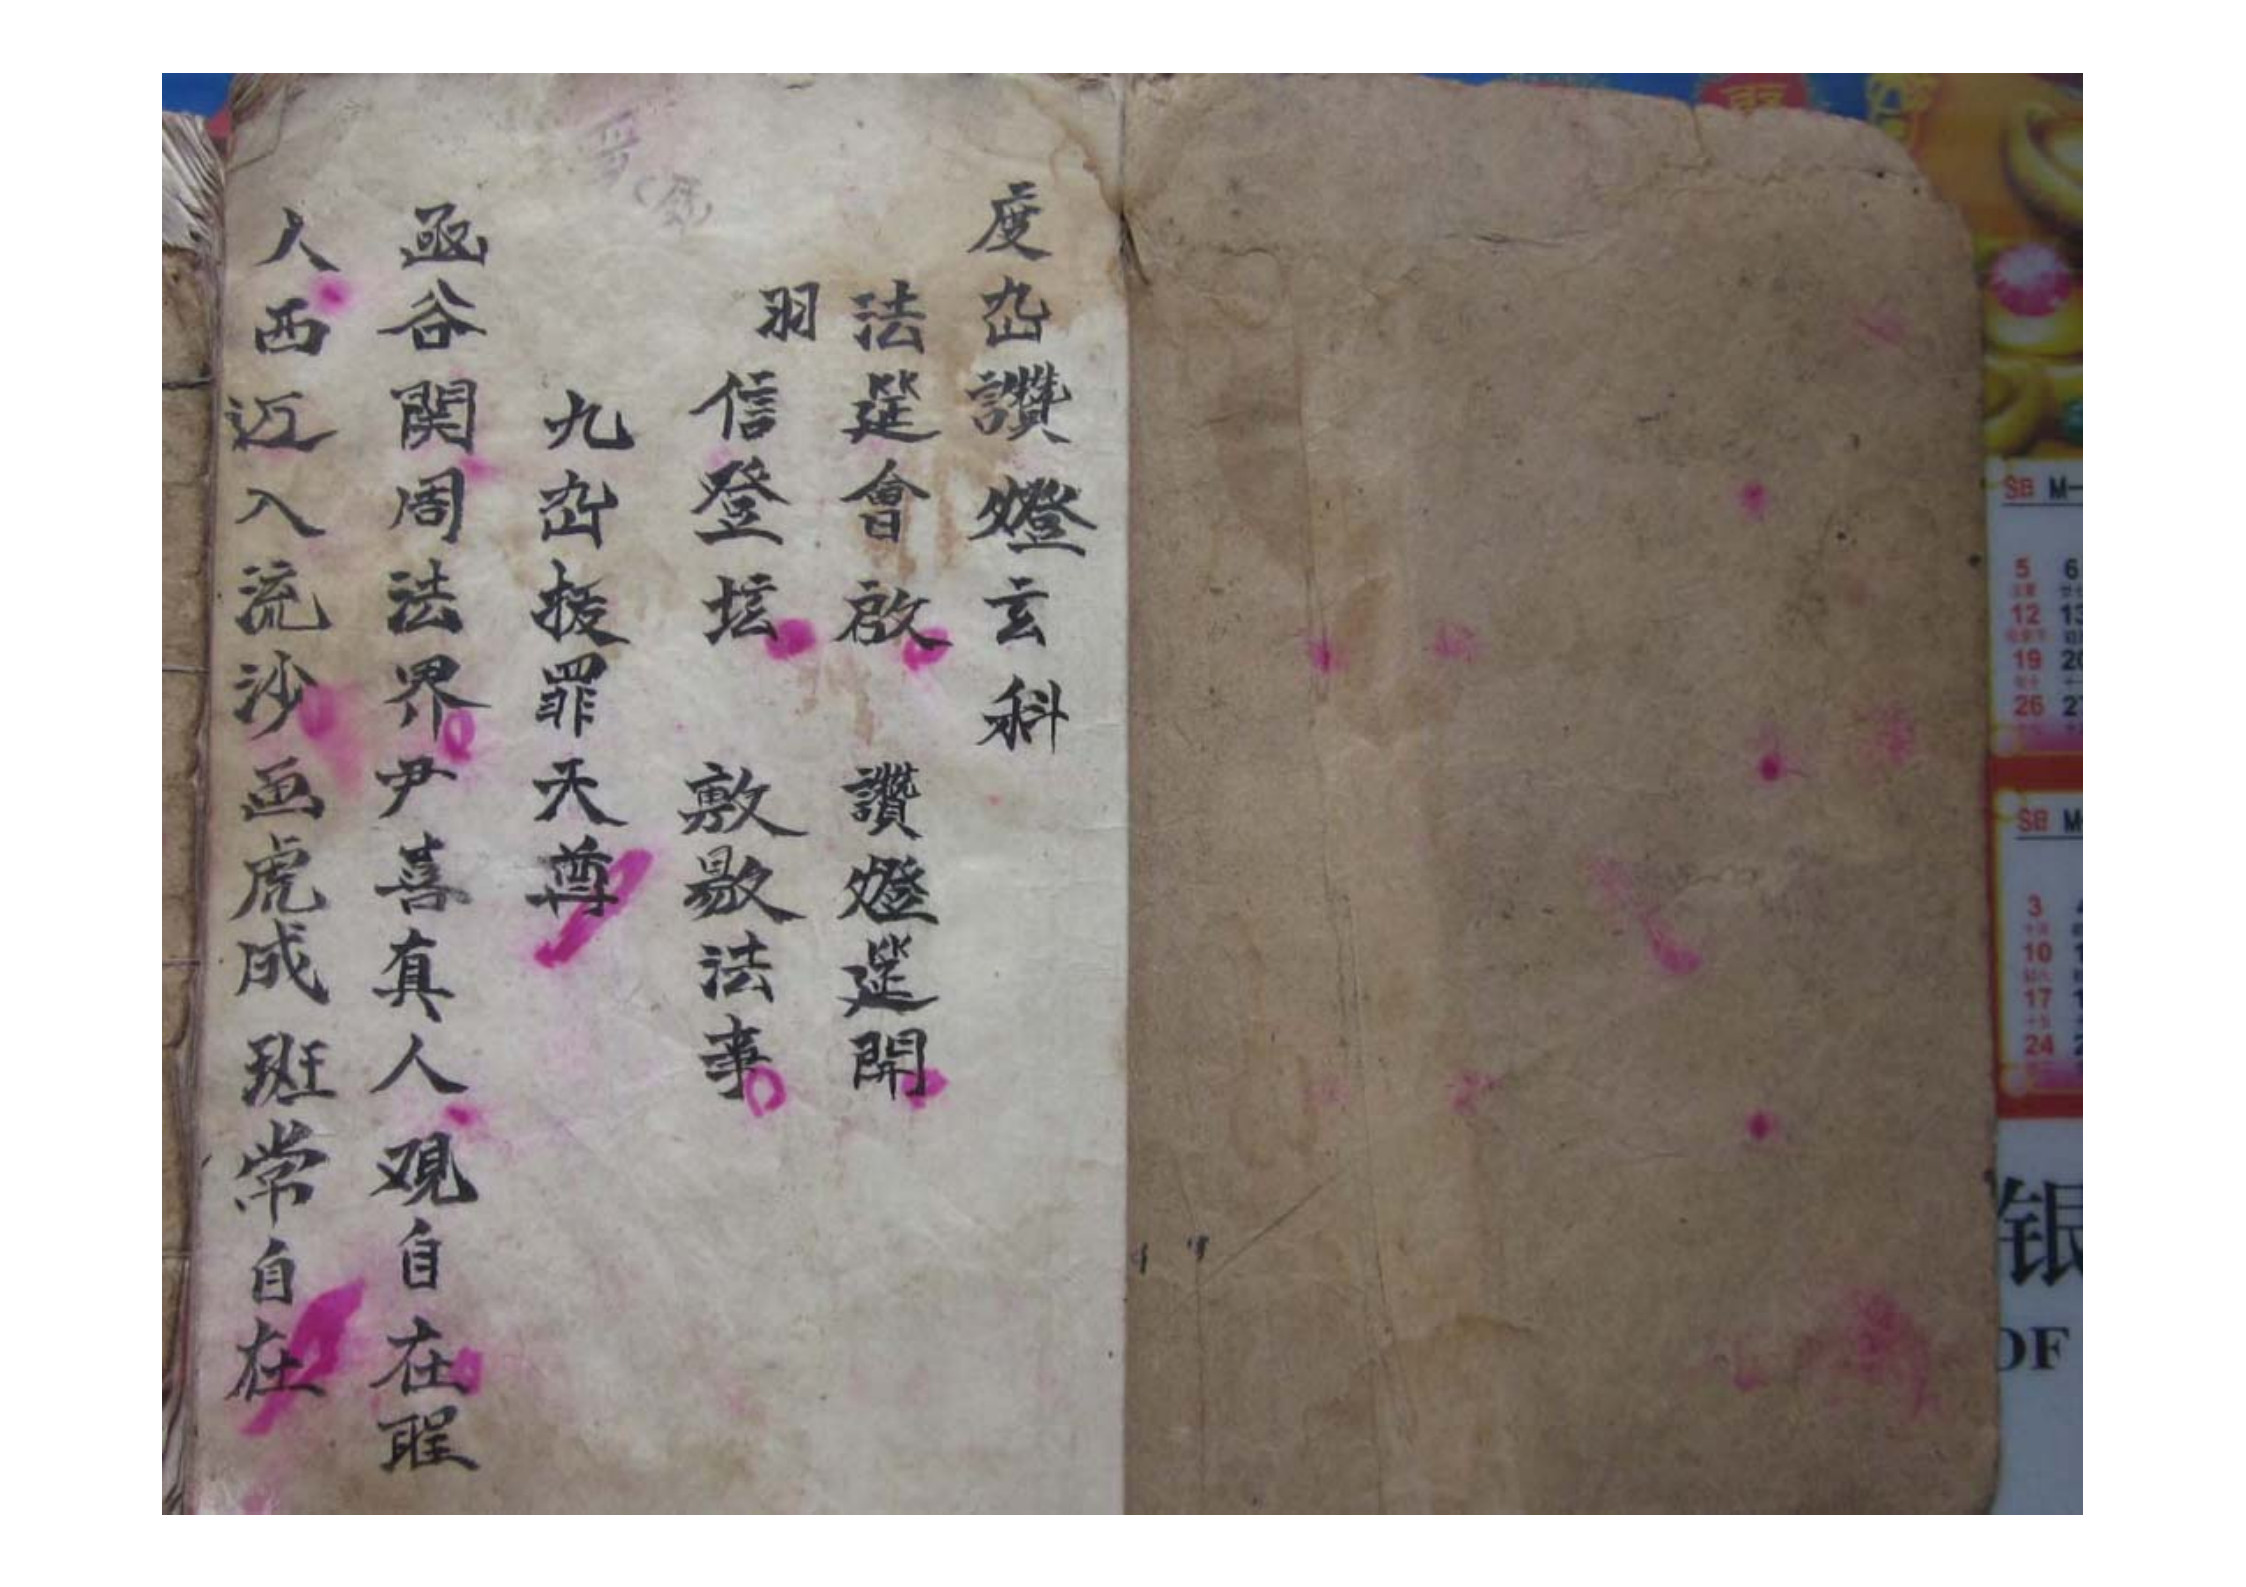 度幽讚燈玄科
法筵會啟 讚燈筵開
羽信登坛 敷敭法事
九幽拔罪天尊
函谷関周法界尹喜真人观自在聖
人西迈入流沙画虎成班常自在
SB M
5 6
12 13
19 20
26 27
SB M
3
10
17
24
银
OF